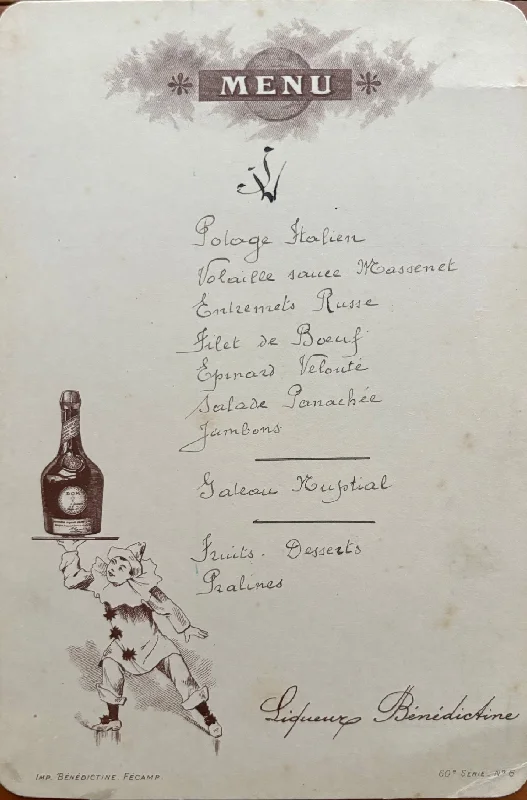 MENU
Potage Italien
Volaille sauce Massenet
Entremets Russe
Filet de Bœuf
Epinard Velouté
Salade Panachée
Jambons
Gateau Nuptial
Fruits. Desserts
Pralines
Liqueur Bénédictine
IMP. BÉNÉDICTINE FECAMP
60e SERIE. No 6